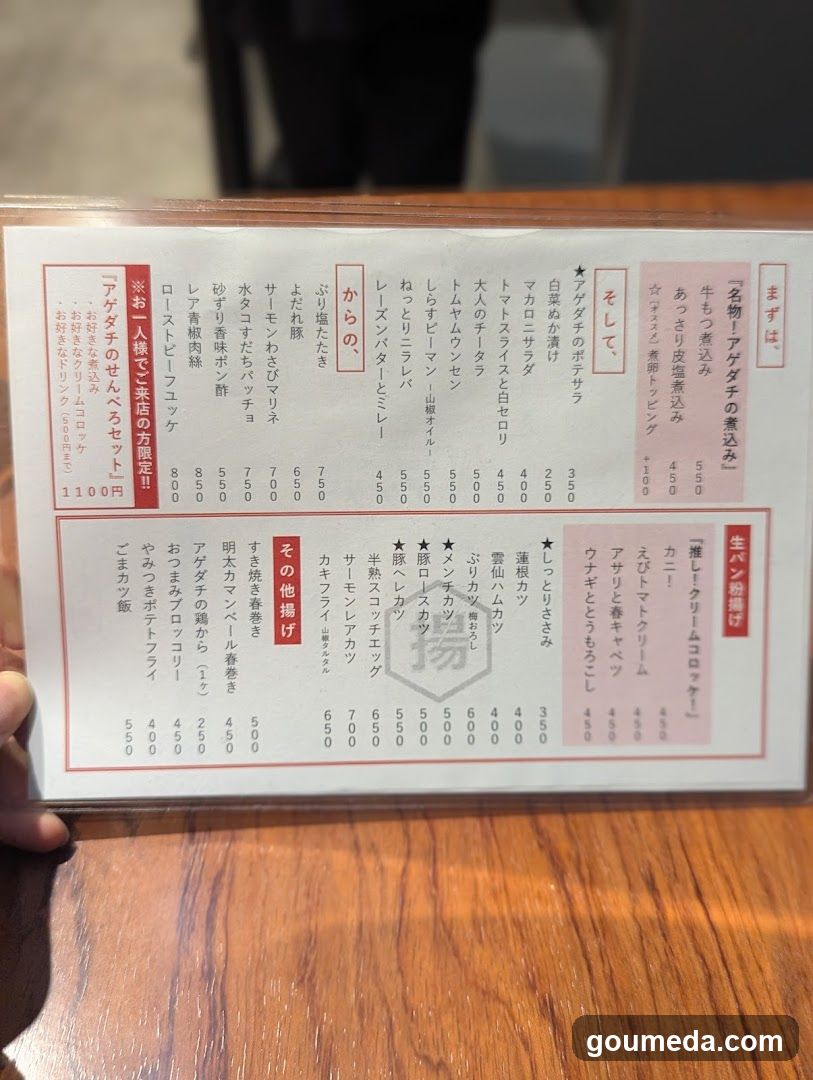 まずは、
『名物！アゲダチの煮込み』
牛もつ煮込み 550
あっさり皮塩煮込み 450
☆［オススメ］煮卵トッピング +100
そして、
★アゲダチのポテサラ 350
白菜ぬか漬け 250
マカロニサラダ 400
トマトスライスと白セロリ 450
大人のチータラ 500
トムヤムウンセン 550
しらすピーマン －山椒オイル－ 550
ねっとりニラレバ 550
レーズンバターとミレー 450
からの、
ぶり塩たたき 750
よだれ豚 650
サーモンわさびマリネ 700
水タコすだちパッチョ 750
砂ずり香味ポン酢 550
レア青椒肉絲 850
ローストビーフユッケ 800
※お一人様でご来店の方限定!!
『アゲダチのせんべろセット』
・お好きな煮込み
・お好きなクリームコロッケ
・お好きなドリンク（500円まで）
1100円
生パン粉揚げ
『推し！クリームコロッケ！』
カニ！ 450
えびトマトクリーム 450
アサリと春キャベツ 450
ウナギととうもろこし 450
★しっとりささみ 350
蓮根カツ 400
雲仙ハムカツ 400
ぶりカツ 梅おろし 600
★メンチカツ 500
★豚ロースカツ 500
★豚ヘレカツ 550
半熟スコッチエッグ 650
サーモンレアカツ 700
カキフライ 山椒タルタル 650
揚
その他揚げ
すき焼き春巻き 500
明太カマンベール春巻き 450
アゲダチの鶏から（1ヶ） 250
おつまみブロッコリー 450
やみつきポテトフライ 400
ごまカツ飯 550
goumeda.com